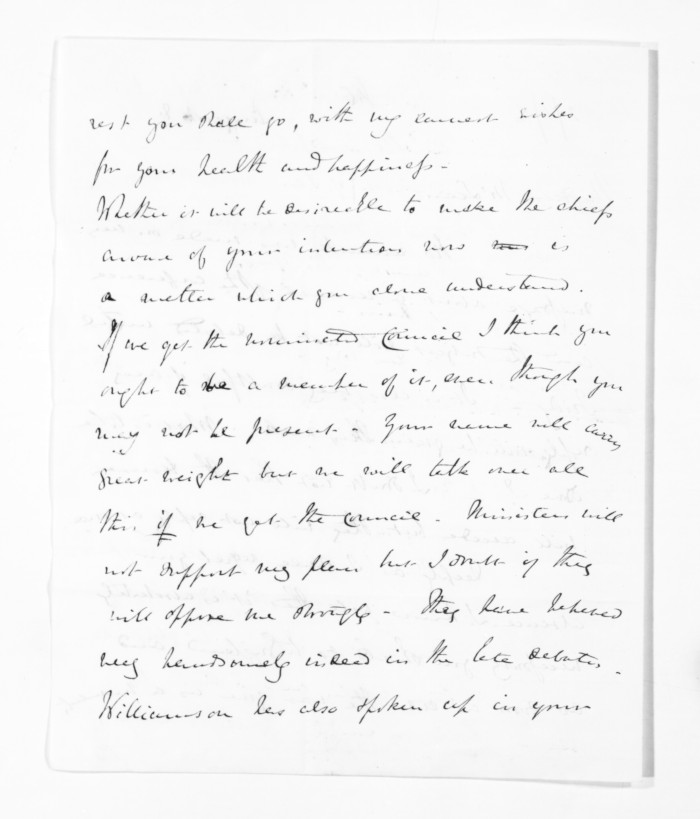 rest you shall go, with my earnest wishes
for your health and happiness -
Whether it will be desireable to make the chiefs
aware of your intentions now is
a matter which you alone understand.
If we get the nominated Council I think you
ought to be a member of it, even though you
may not be present - Your name will carry
great weight but we will talk over all
this if we get the Council - Ministers will
not support my plan but I doubt if they
will oppose me strongly - They have behaved
very handsomely indeed in the late debates -
Williamson has also spoken up in your